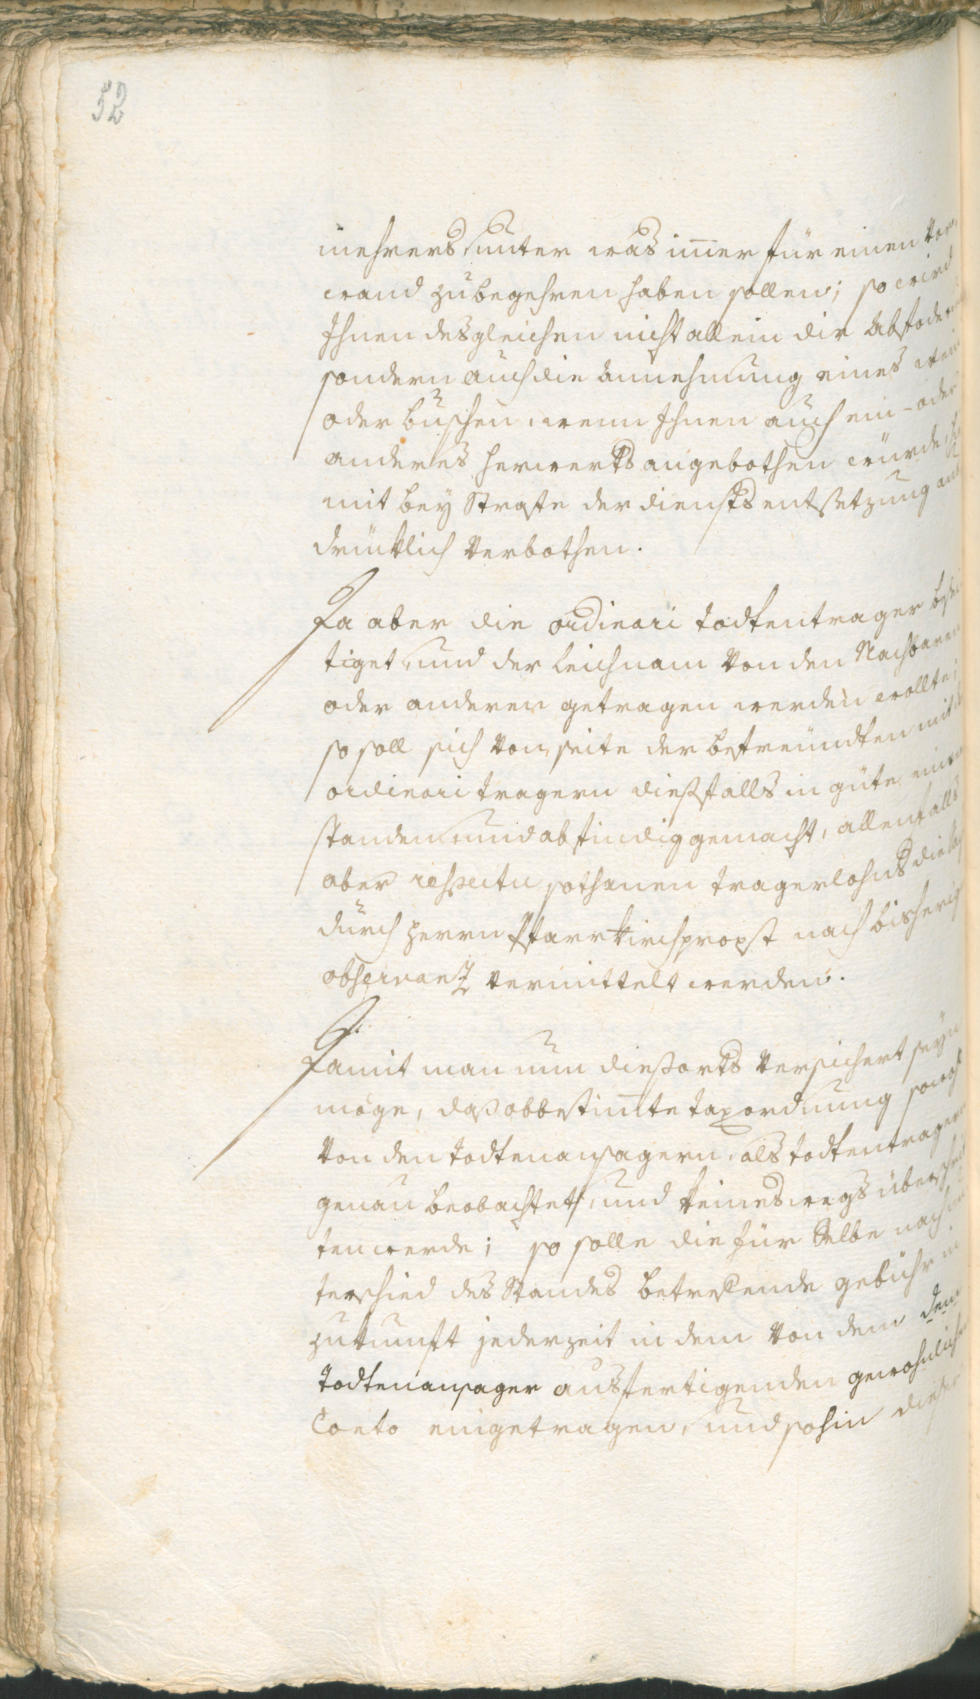 52
mehrers, unter was im̄er für einen Vor
wand zubegehren haben sollen; so wird
Ihnen desgleichen nicht allein die Abfoder
sondern auch die Annehmung eines
oder buschen, wenn Ihnen auch ein- oder
anderes herwerts angebothen würde,
mit bey Strafe der diensts entsetzung aus
drüklich verbothen.
Da aber die ordinari todtentrager
tiget, und der Leichnam von den Nachbaren
oder anderen getragen werden wollte;
so soll sich von seite der befreundten mit
ordinari tragern diesfalls in güte
standen und abfindig gemacht, allenfalls
aber respectu sothanen tragerlohns die
durch Herrn Pfarrkirchpropst nach bisherig
observanz vermittelt werden.
Damit man nun diesorts versichert seyn
möge, das obbestim̄te taxordnung sowohl
von den todtenansagern, als todtentragern
genau beobachtet, und keineswegs überschrit
ten werde; so solle die für Selbe nach
terschied des Standes betreffende gebühr in
zukunft jederzeit in dem von dem dem
todtenansager ausfertigenden gewohnlichen
Conto eingetragen, und sohin dieser